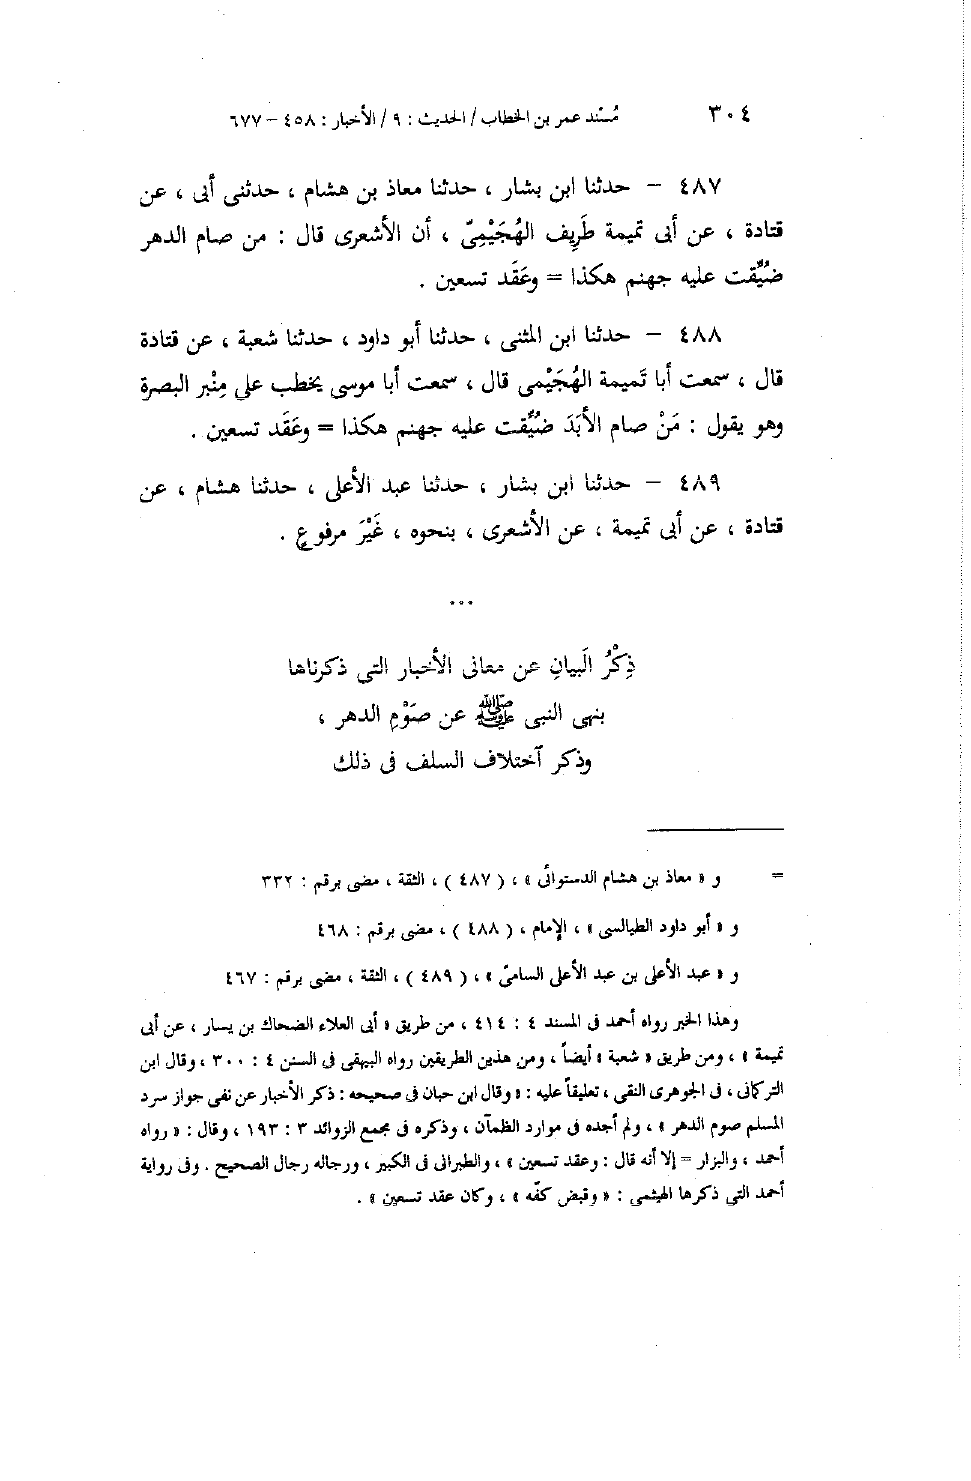 ٣٠٤ مُسْند عمر بن الخطاب / الحديث : ٩ / الأخبار : ٤٥٨ – ٦٧٧
٤٨٧ – حدثنا ابن بشار ، حدثنا معاذ بن هشام ، حدثنى أبى ، عن
قتادة ، عن أبى تميمة طَرِيف الهُجَيْمِىّ ، أن الأشعرى قال : من صام الدهر
ضُيِّقت عليه جهنم هكذا = وعَقَد تسعين .
٤٨٨ – حدثنا ابن المثنى ، حدثنا أبو داود ، حدثنا شعبة ، عن قتادة
قال ، سمعت أبا تَميمة الهُجَيْمى قال ، سمعت أبا موسى يخطب على مِنْبر البصرة
وهو يقول : مَنْ صام الأبَدَ ضُيِّقت عليه جهنم هكذا = وعَقَد تسعين .
٤٨٩ – حدثنا ابن بشار ، حدثنا عبد الأعلى ، حدثنا هشام ، عن
قتادة ، عن أبى تميمة ، عن الأشعرى ، بنحوه ، غَيْرَ مرفوعٍ .
...
ذِكْرُ البَيانِ عن معانى الأخبار التى ذكرناها
بنهى النبى ﷺ عن صَوْمِ الدهر ،
وذكر آختلاف السلف فى ذلك
= و « معاذ بن هشام الدستوائى » ، ( ٤٨٧ ) ، الثقة ، مضى برقم : ٣٣٢
و « أبو داود الطيالسى » ، الإمام ، ( ٤٨٨ ) ، مضى برقم : ٤٦٨
و « عبد الأعلى بن عبد الأعلى السامىّ » ، ( ٤٨٩ ) ، الثقة ، مضى برقم : ٤٦٧
وهذا الخبر رواه أحمد فى المسند ٤ : ٤١٤ ، من طريق « أبى العلاء الضحاك بن يسار ، عن أبى
تميمة » ، ومن طريق « شعبة » أيضاً ، ومن هذين الطريقين رواه البيهقى فى السنن ٤ : ٣٠٠ ، وقال ابن
التركمانى ، فى الجوهرى النقى ، تعليقاً عليه : « وقال ابن حبان فى صحيحه : ذكر الأخبار عن نفى جواز سرد
المسلم صوم الدهر » ، ولم أجده فى موارد الظمآن ، وذكره فى مجمع الزوائد ٣ : ١٩٣ ، وقال : « رواه
أحمد ، والبزار = إلا أنه قال : وعقد تسعين » ، والطبرانى فى الكبير ، ورجاله رجال الصحيح . وفى رواية
أحمد التى ذكرها الهيثمى : « وقبض كفّه » ، وكان عقد تسعين » .